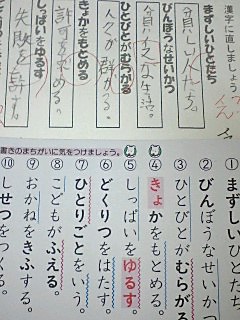 漢字に直しましょう
まずしいひとたち
貧しい人たち。
びんぼうなせいかつ
貧ぼうな生活。
ひとびとがむらがる
人々が群がる。
きょかをもとめる
許可を求める。
しっぱいをゆるす
失敗を許す。
書きのまちがいに気をつけましょう。
① まずしいひとたち
② びんぼうなせいかつ
③ ひとびとがむらがる
④ きょかをもとめる。
⑤ しっぱいをゆるす。
⑥ どくりつをはたす。
⑦ ひとりごとをいう。
⑧ こどもがふえる。
⑨ おかねをきふする。
⑩ しせつをつくる。